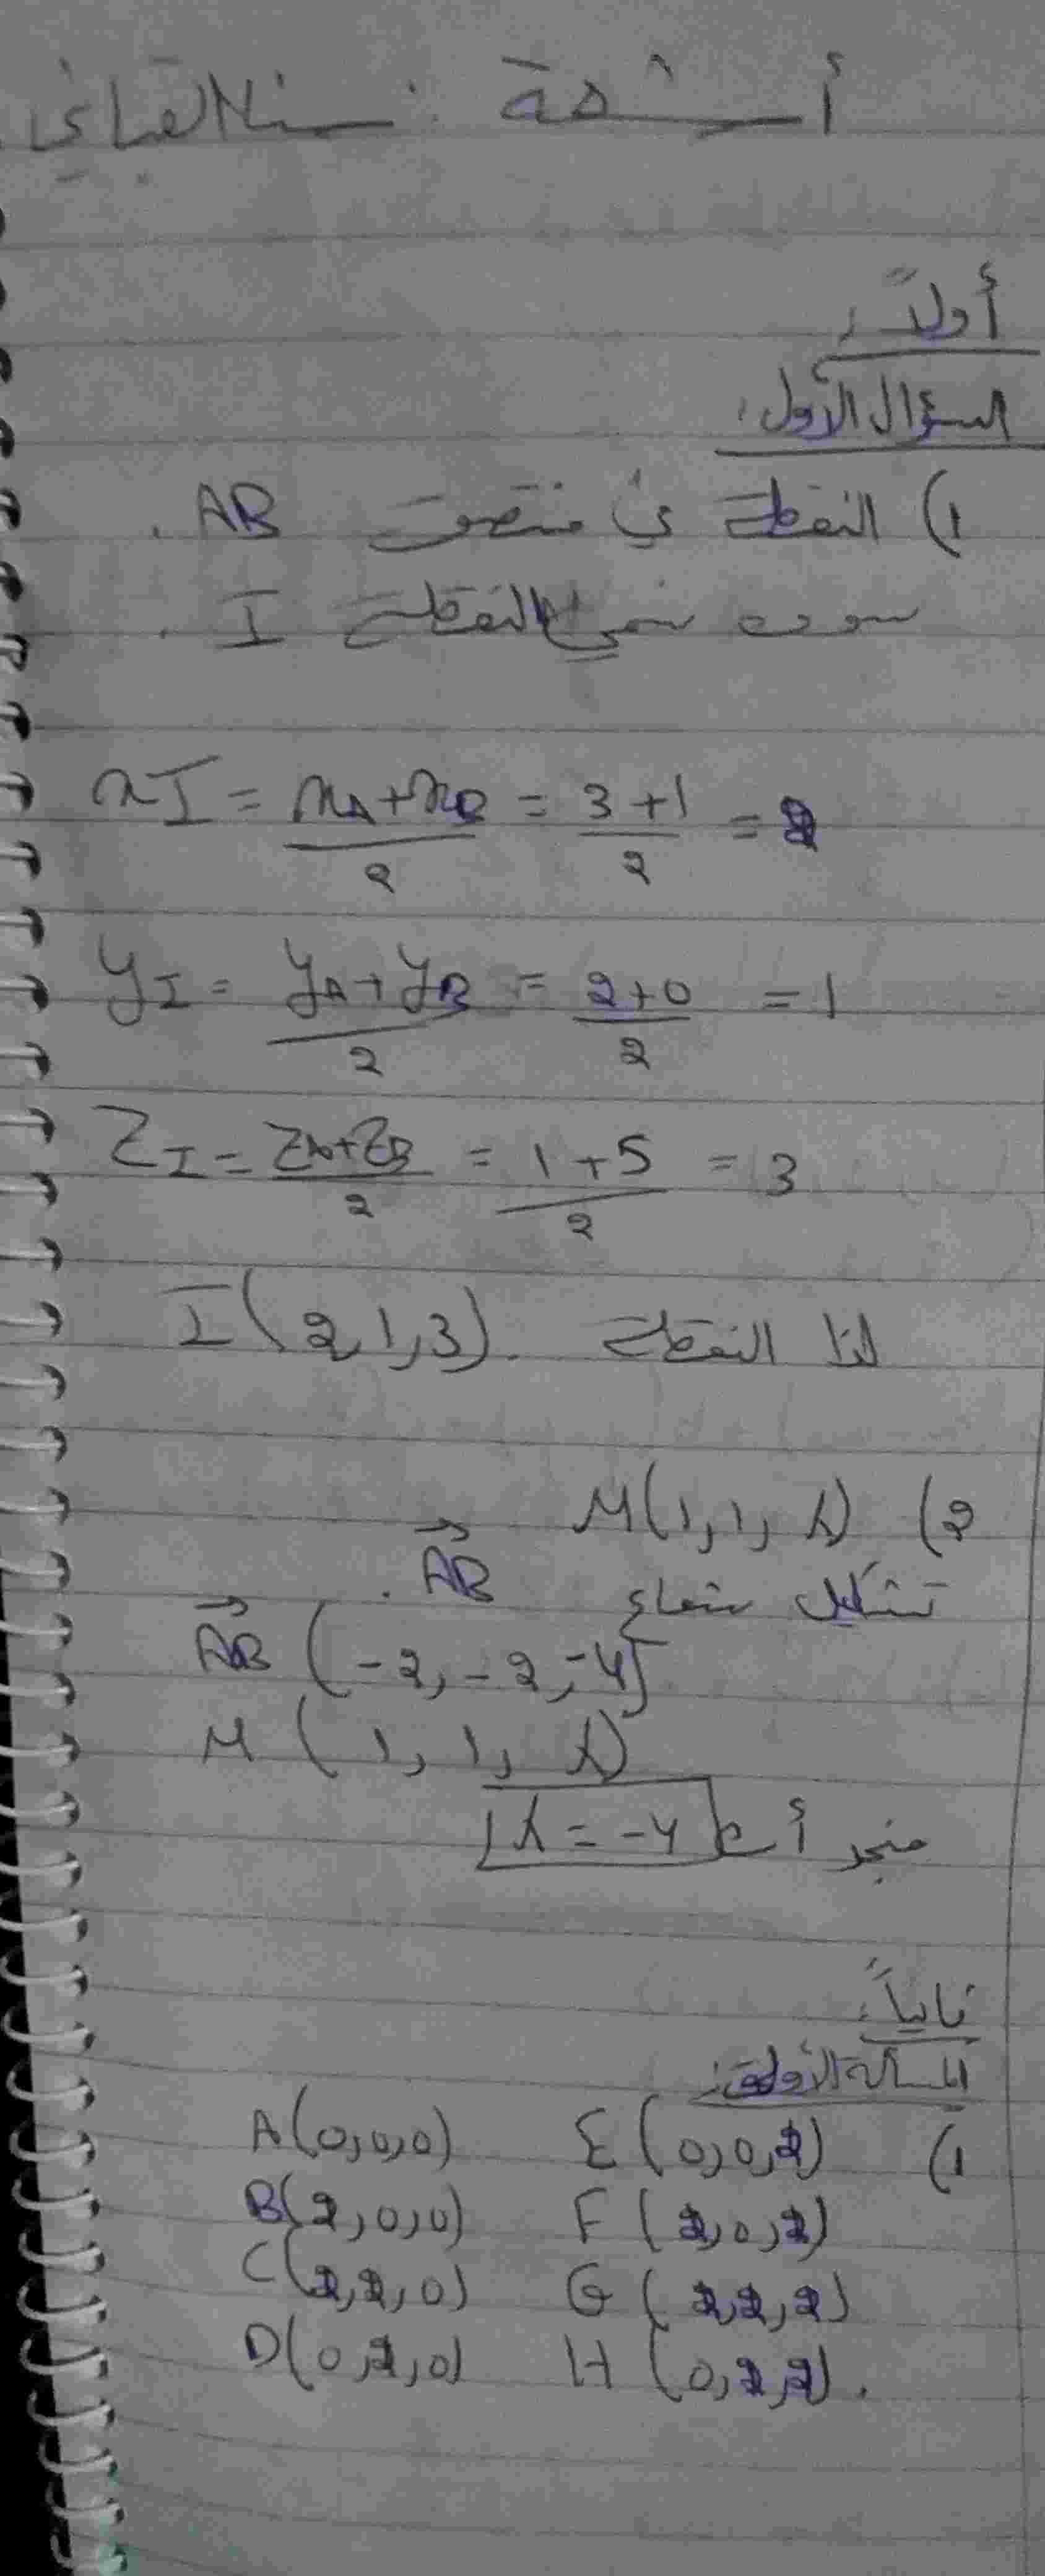 أولاً:
السؤال الأول:
1) النقطة في منتصف AB.
سوف نسمي النقطة I.
xI = xA+xB/2 = 3+1/2 = 2
yI = yA+yB/2 = 2+0/2 = 1
ZI = ZA+ZB/2 = 1+5/2 = 3
لذا النقطة I(2,1,3).
2) M(1,1,λ)
تشكيل شعاع AB.
AB (-2,-2,-4)
M (1,1,λ)
منجد أن λ = -4
ثانياً:
المسألة الأولى:
1) A(0,0,0) E(0,0,2)
B(2,0,0) F(2,0,2)
C(2,2,0) G(2,2,2)
D(0,2,0) H(0,2,2).